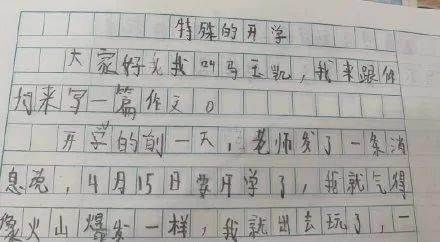 特殊的开学
大家好，我叫马玉凯，我来跟你
们来写一篇作文。
开学的前一天，老师发了一条消
息说，4月15日要开学了，我就气得
像火山爆发一样，我就出去玩了，一